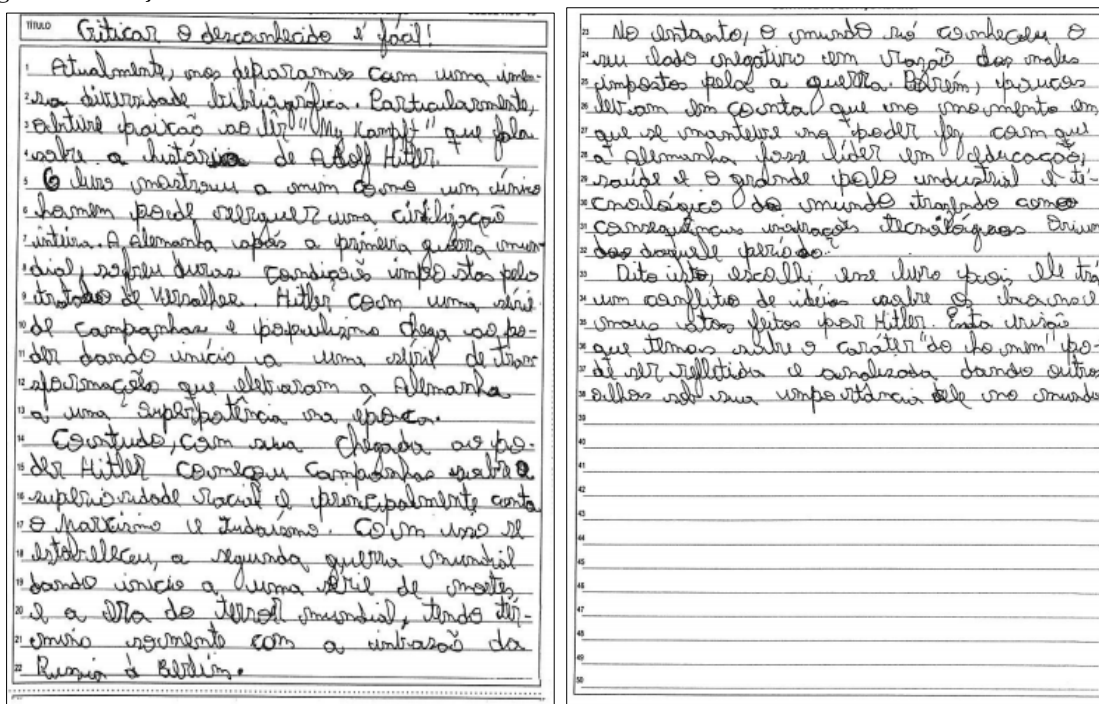 TÍTULO Criticar o desconhecido é fácil!
1 Atualmente, nos deparamos com uma imen-
2 sa diversidade bibliográfica. Particularmente,
3 obtive paixão ao lêr "My Kampft" que fala
4 sobre a história de Adolf Hitler.
5 O livro mostrou a mim como um único
6 homem pode reerguer uma civilização
7 inteira. A Alemanha após a primeira guerra mun-
8 dial, sofreu duras condições impostas pelo
9 tratado de Versalhes. Hitler com uma série
10 de campanhas e populismo chega ao po-
11 der dando início a uma série de tran
12 sformações que elevaram a Alemanha
13 a uma superpotência na época.
14 Contudo, com sua chegada ao po-
15 der Hitler começou campanhas sobre a
16 superioridade racial e principalmente conta
17 o Marxismo e Judaísmo. Com isso se
18 estabeleceu, a segunda guerra mundial
19 dando inicio a uma série de mortes
20 e a era do terror mundial, tendo tér-
21 mino somente com a invasão da
22 Russia à Berlim.
23 No entanto, o mundo só conheceu o
24 seu lado negativo em razão dos males
25 impostos pela a guerra. Porém, poucos
26 levam em conta que no momento em
27 que se manteve no poder fez com que
28 a Alemanha fosse líder em educação,
29 saúde e o grande polo industrial e té-
30 cnológico do mundo trazendo como
31 consequências inovações tecnológicas oriun
32 das daquele período.
33 Dito isto, escolhi esse livro pois ele tráz
34 um conflito de idéias sobre os
35 maus atos feitos por Hitler. Esta visão
36 que temos sobre o caráter "do homem" po-
37 de ser refletida e analisada, dando outros
38 olhos sob sua importância dele no mundo
39
40
41
42
43
44
45
46
47
48
49
50